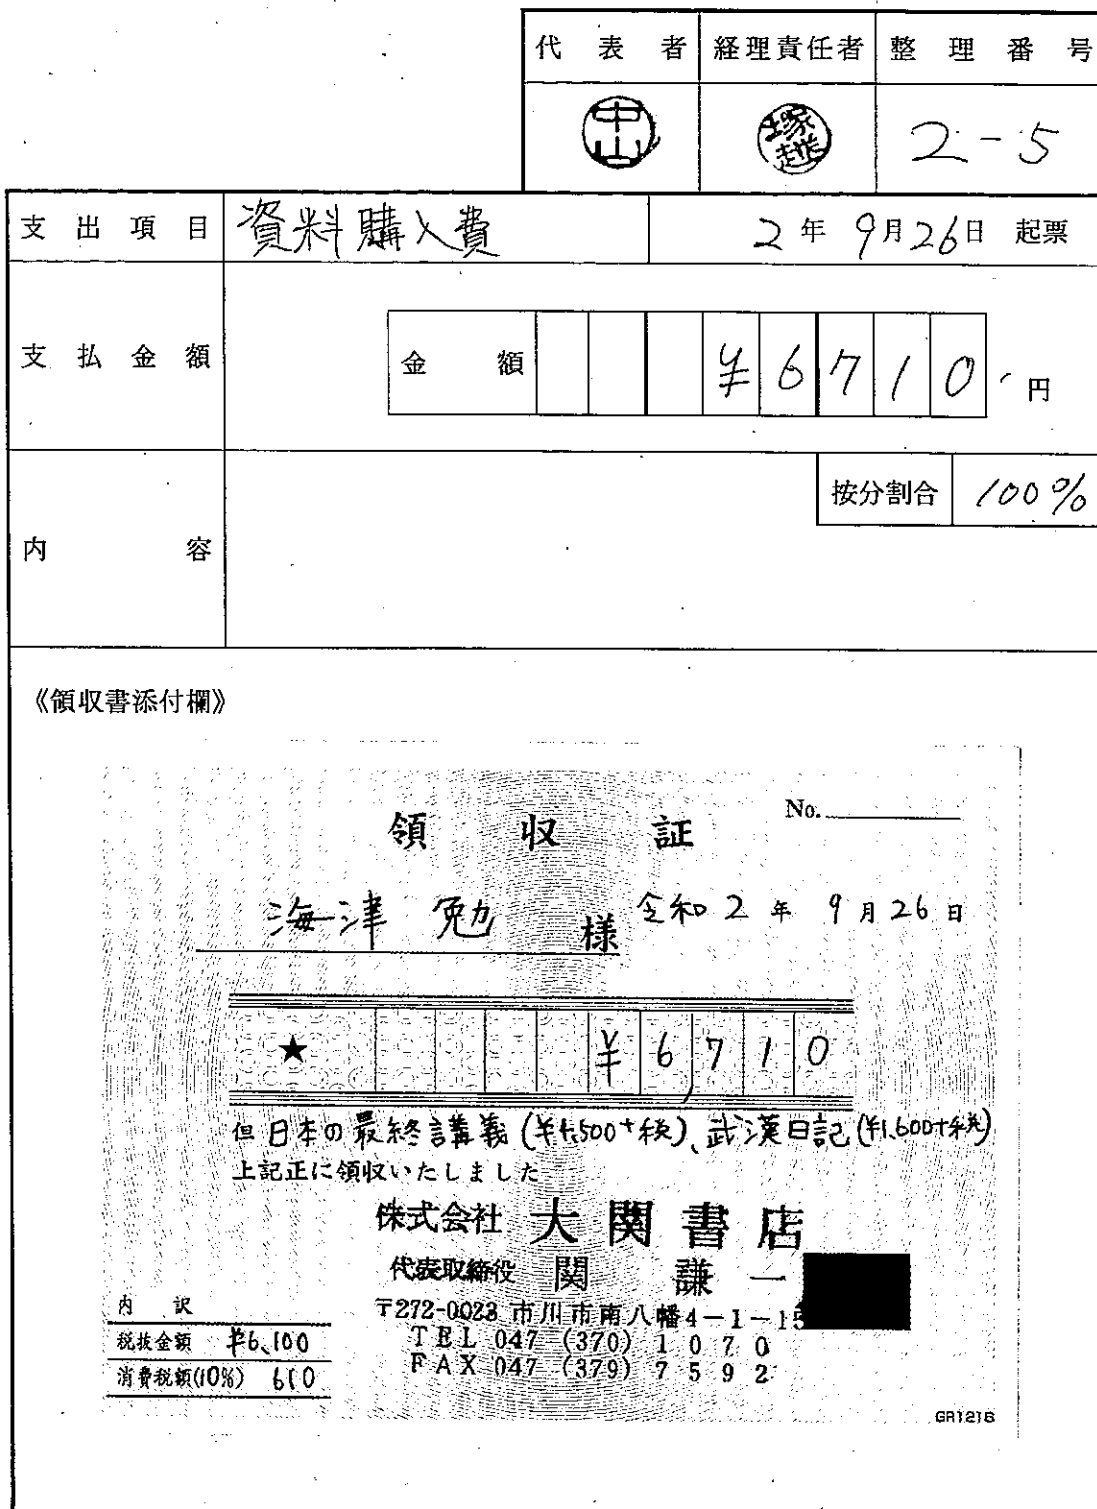 代表者 経理責任者 整理番号
中山 塚越 2-5
支出項目 資料購入費 2年9月26日 起票
支払金額 金額 ¥6710 円
按分割合 100%
内容
《領収書添付欄》
No.
領収証
海津 勉 様 令和2年9月26日
★ ¥6,710
但 日本の最終講義(¥4,500+税)、武漢日記(¥1,600+税)
上記正に領収いたしました
株式会社 大関書店
代表取締役 関 謙一
〒272-0023 市川市南八幡4-1-15
TEL 047 (370) 1070
FAX 047 (379) 7592
内訳
税抜金額 ¥6,100
消費税額(10%) 610
GR1216